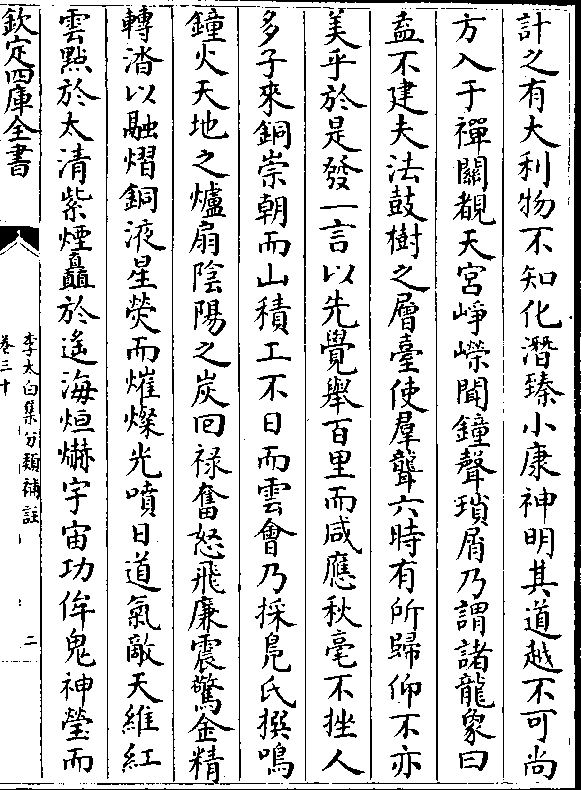 計之有大利物不知化潛臻小康神明其道越不可尚
方入于禪關覩天宮崢嶸聞鐘聲瑣屑乃謂諸龍象曰
盍不建夫法鼓樹之層臺使羣聾六時有所歸仰不亦
美乎於是發一言以先覺舉百里而咸應秋毫不挫人
多子來銅崇朝而山積工不日而雲會乃採鳧氏撰鳴
鐘火天地之爐扇陰陽之炭回祿奮怒飛廉震驚金精
轉涾以融熠銅液星熒而熣燦光噴日道氣敵天維紅
雲點於太清紫煙矗於遙海烜爀宇宙功侔鬼神瑩而
欽定四庫全書
李太白集分類補註
卷三十
二